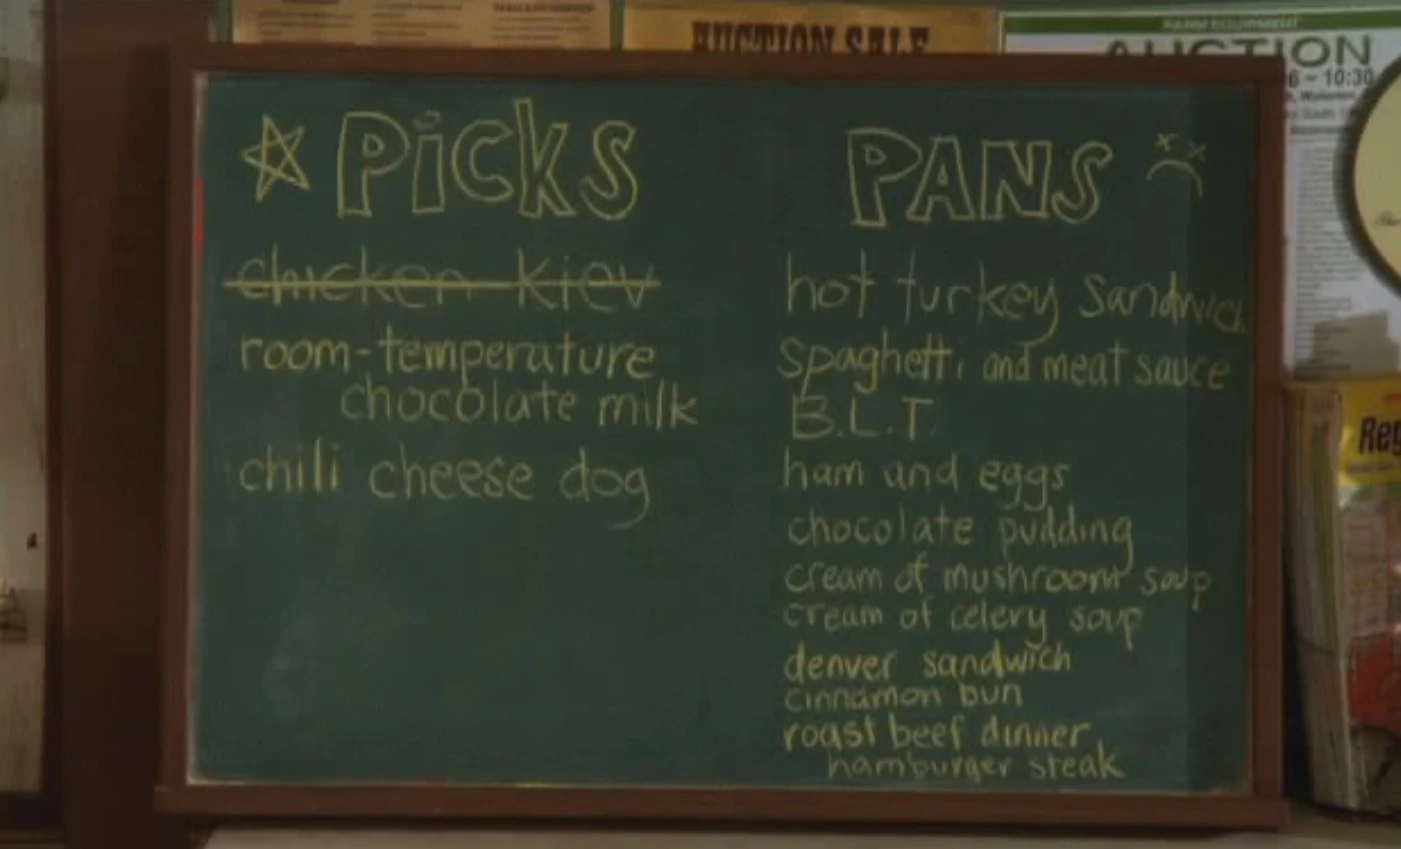 AUCTION SALE
FARM EQUIPMENT
AUCTION
6 ~ 10:30
PiCKS
PANS
chicken Kiev
room-temperature
chocolate milk
chili cheese dog
hot turkey sandwich
spaghetti and meat sauce
B.L.T.
ham and eggs
chocolate pudding
cream of mushroom soup
cream of celery soup
denver sandwich
cinnamon bun
roast beef dinner
hamburger steak
Reg